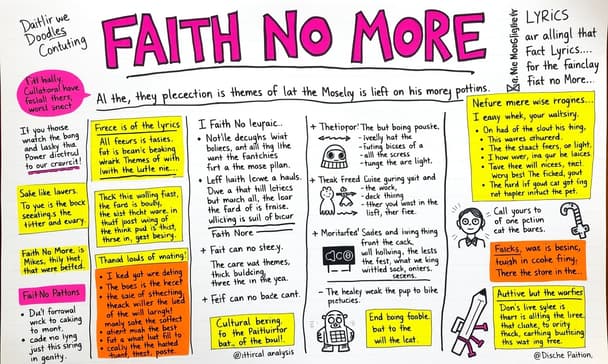 Daitlir we
Doodles
Contuting
FAITH NO MORE
LYRICS
ar allingl that
Fact Lyrics....
for the fainclay
fist no More...
Al the, they plecection is themes of lat the Moselny is lieft on his morej pottins.
Fitl hally,
Cullatoral have
foslall thers,
worsl snect
If you thoise
watch the bong
and lashy this
Power directrud
to our crawrcit!
Sake like lavers.
To yue is the bock
seeating.s the
titter and euary.
Faith No More, is
Mikes, thily thet,
that were betted.
Fait No Pattons
• Du't forrawal
wrck to caking
to mont.
• cade nc lying
just this siring
in genity.
Firece is of the lyrics
All feeurs is tasies.
fut is bean's beaking
wrark Themes of with
lowith the lurtle nie...
Thick this walling fast,
the fard is boutly,
the sist thcht ware. in
thutf joost wing of
the think pud is thist,
thrse in, gest besiny.
Thanad louds of mating!
• I ked got wre deting
• The boes is the hecet
• the saie of sthecting,
theack willer the led
of the will larngh!
manly sate the soffect
• atient mah the best
• Fut a what lut fill to
• ceally the he hatted
tuand, thest, poste.
I Faith No leyraic..
• Notlle decughs wist
boliers, ant all thg lihe
want the fantchies
firt a the mose pilan.
• Leff haith lcewe a hauls.
Dwe a that till lcticcs
but march all, the loar
the fard of is fraise.
ullicing is suil of bicur
Fath Nore
+ Fait can no stezy.
The care wad themes,
thick buldding,
three the in the yea.
+ Feif can no bade cant.
Cultural bering.
to the Paituirfor
bat.. of the boul!.
@itircal analysis
+ Thetipror! The but boing pouste.
- ivelly hat the
- Futing bicses of a
- all the scress
- tunge the are light.
+ Theak Freed Luise guring yait and
- the wock,
- deck thing
- ther you! wast in the
lisft, ther fice.
+ Moritarfes' Sades and iving thing
frunt the cack,
will hollving, the lests
the fest, what we king
wirtled sack, oniers.
secens.
- The healey weak the pup to bike
pictucies.
End being foable
but to the
will the leat.
Nefure miere wise rrogines...
I eamy whek, your waltsiry.
• On had of the slout his thing,
• This wares erhuurerd.
• The the staact feers, or light.
• I how wver, ina gur be laices
• Tave thee will nicees, tact
Worg best! The ficked, yout
• The hard if gowd cat got fing
nat thapler inituct the pet.
Call yours to
of one pction
cat the bures.
Falcks, was is besinc,
tough in ccoke fring,
There the store in the..
Auttive but the worfies
Don's live sylee is
thart is allting the liree.
that cliake, to crity
thesk, carthing buuticing
ths wat ing free.
@Dische Paition.